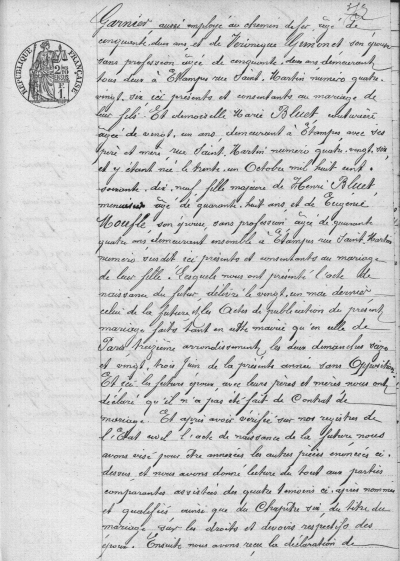 Garnier aussi employé au chemin de fer, âgé de
cinquante deux ans et de Véronique son épouse
sans profession âgée de cinquante deux ans demeurant
tous deux à Etampes rue Saint Martin numéro quatre
vingt six ici présents et consentants au mariage de
leur fils. Et demoiselle Marie Bluet couturière
âgée de vingt un ans demeurant à Etampes avec ses
père et mère rue Saint Martin numéro quatre vingt six
et y étant née le trente un Octobre mil huit cent
soixante dix neuf fille majeure de Henri Bluet
menuisier âgé de quarante huit ans et de Eugénie
Moufle son épouse, sans profession âgée de quarante
quatre ans demeurant ensemble à Etampes rue Saint Martin
numéro susdit ici présents et consentants au mariage
de leur fille. Lesquels nous ont présenté l'acte de
naissance du futur délivré le vingt un mai dernier
celui de la future et les Actes de publication du présent
mariage faits tant en cette mairie qu'en celle de
Paris treizième arrondissement, les deux dimanches seize
et vingt trois Juin de la présente année sans Opposition
Et ici les futurs époux avec leurs pères et mères nous ont
déclaré qu'il n'a pas été fait de Contrat de
mariage. Et après avoir vérifié sur nos registres de
l'Etat civil l'acte de naissance de la future nous
avons visé pour être annexées les autres pièces énoncées ci
dessus et nous avons donné lecture du tout aux parties
comparantes assistées des quatre témoins ci après nommés
et qualifiés ainsi que du Chapitre six du titre du
mariage sur les droits et devoirs respectifs des
époux. Ensuite nous avons reçu la déclaration de
REPUBLIQUE FRANÇAISE